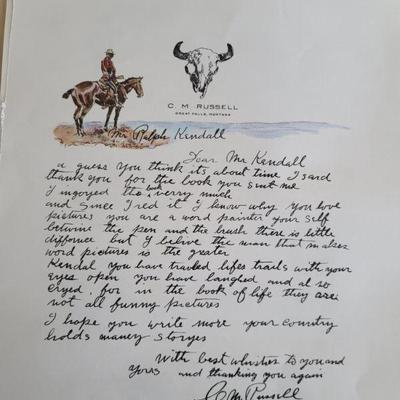 C. M. RUSSELL
GREAT FALLS, MONTANA
Mr Ralph Kendall
Dear Mr Kendall
a guess you think its about time I said
thank you for the book you sent me
I ingoyed the book verry much
and since I red it I know why you love
pictures you are a word painter your self
betwine the pen and the brush there is little
diffornce but I belive the man that makes
word pictures is the greater
Kendal you have travled lifes trails with your
eyes open you have laughed and al so
cryed for in the book of life they are
not all funny pictures
I hope you write more your country
holds maney storyes
With best whishes to you and
yours and thanking you again
C M Russell